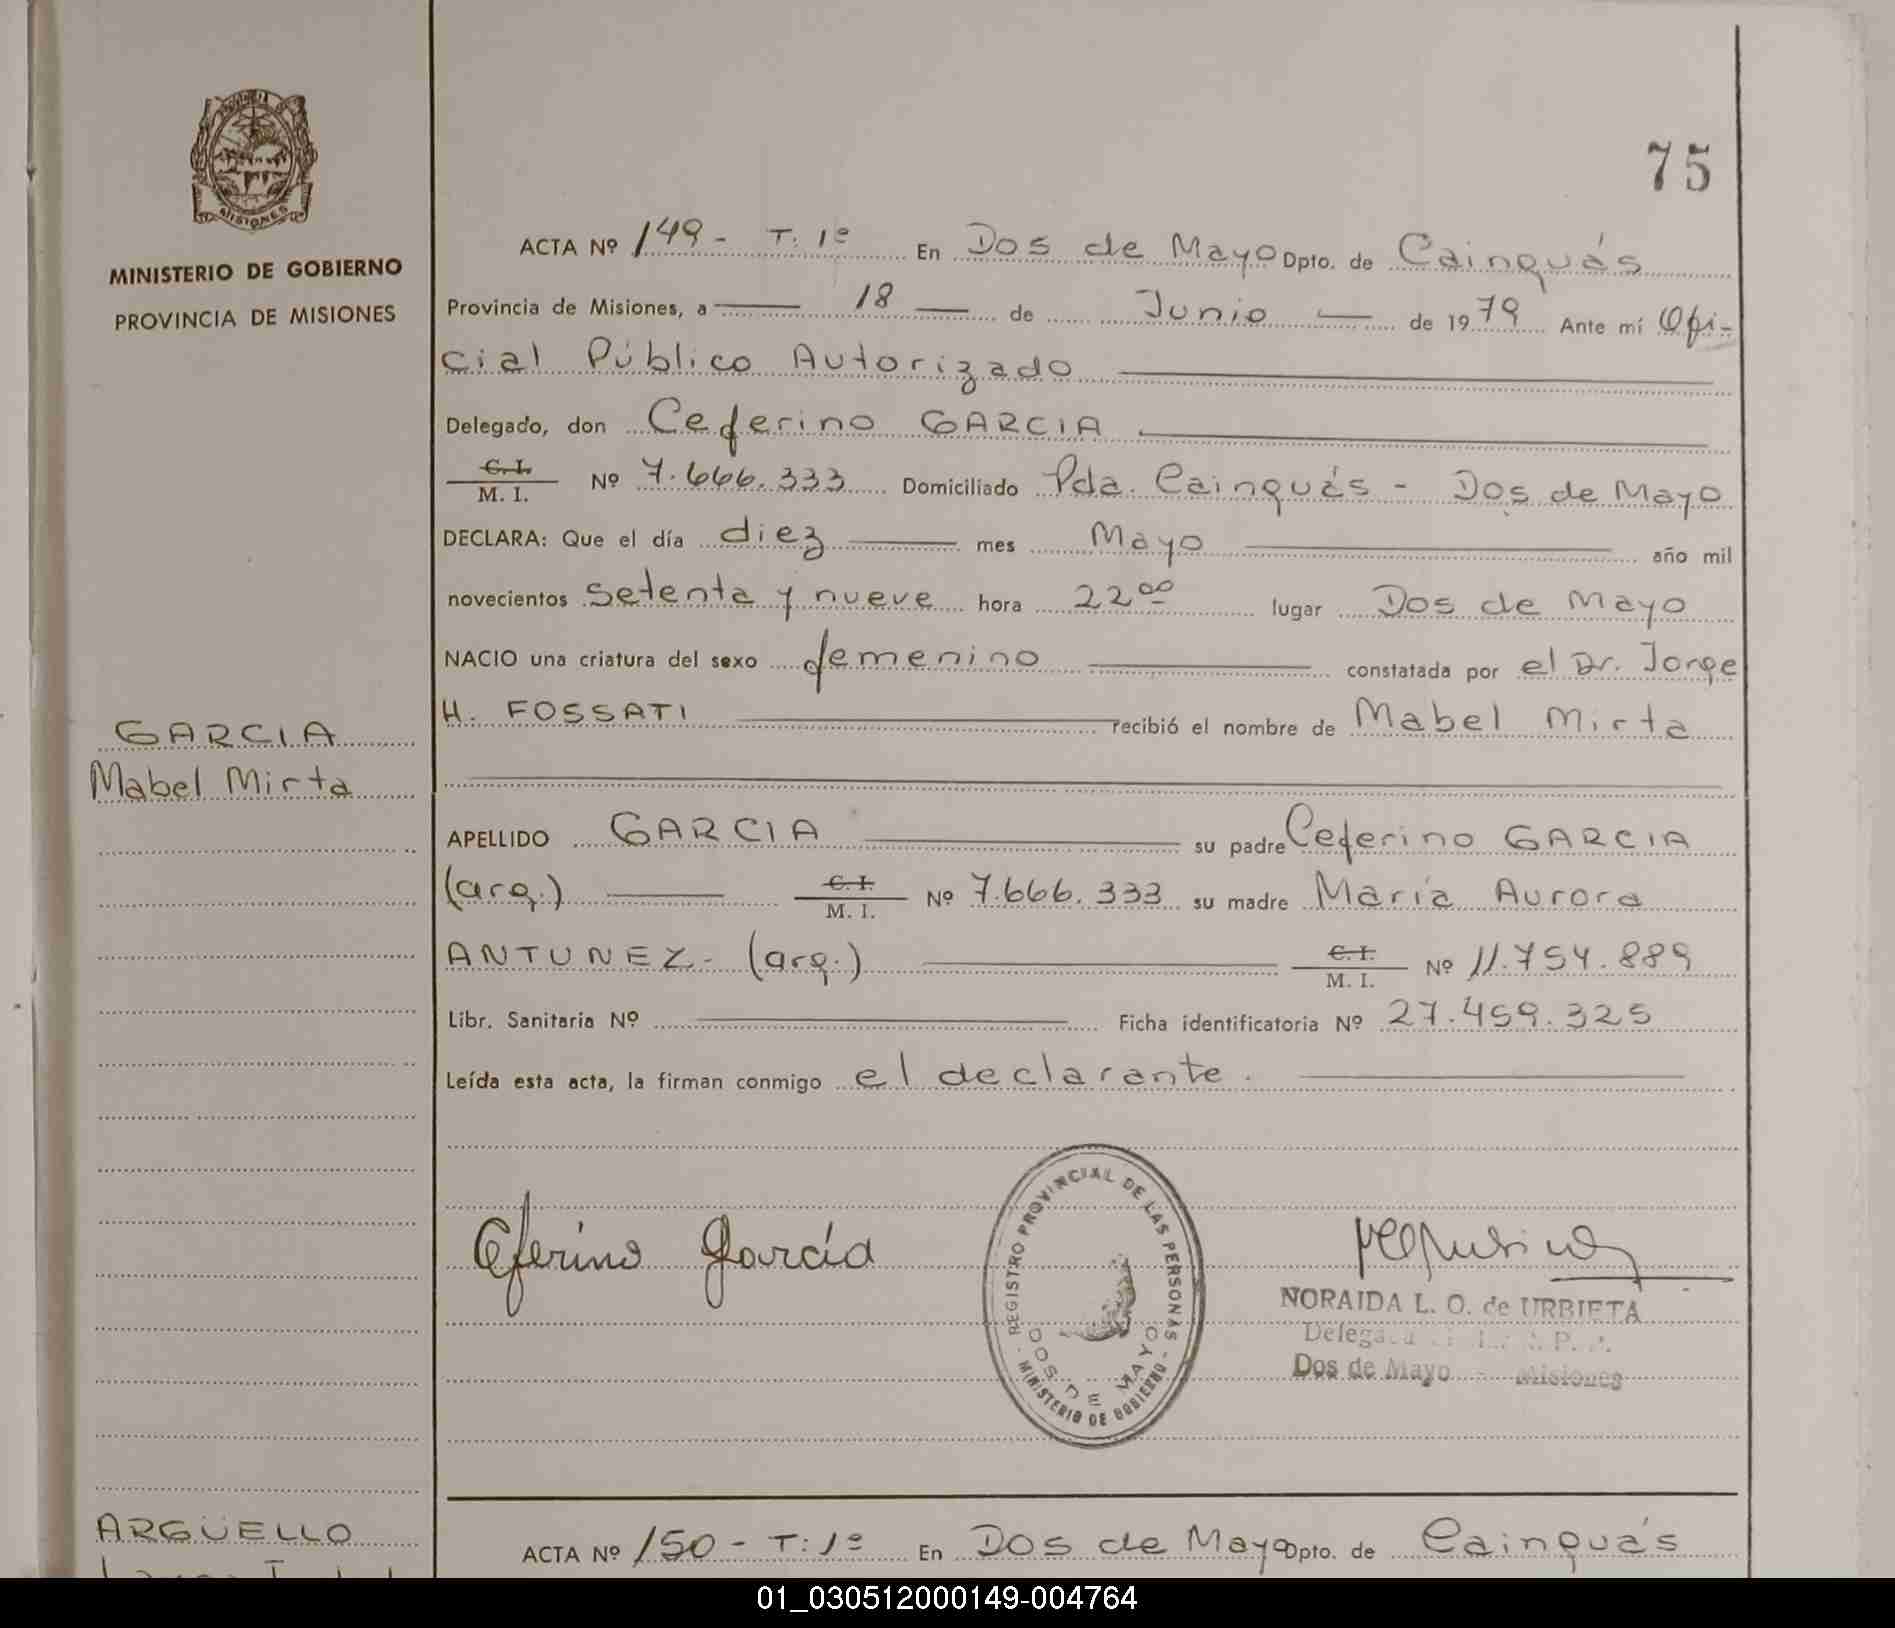 MISIONES
MINISTERIO DE GOBIERNO
PROVINCIA DE MISIONES
75
ACTA Nº 149 - T: 1º En Dos de Mayo Dpto. de Cainguás
Provincia de Misiones, a 18 de Junio de 1979 Ante mí Ofi-
cial Público Autorizado
Delegado, don Ceferino GARCIA
C. I.
M. I. Nº 7.666.333 Domiciliado Pda. Cainguás - Dos de Mayo
DECLARA: Que el día diez mes Mayo año mil
novecientos setenta y nueve hora 22ºº lugar Dos de Mayo
NACIO una criatura del sexo femenino constatada por el Dr. Jorge
H. FOSSATI recibió el nombre de Mabel Mirta
GARCIA
Mabel Mirta
APELLIDO GARCIA su padre Ceferino GARCIA
(arg.) C. I. M. I. Nº 7.666.333 su madre María Aurora
ANTUNEZ - (arg.) C. I. M. I. Nº 11.754.889
Libr. Sanitaria Nº Ficha identificatoria Nº 27.459.325
Leída esta acta, la firman conmigo el declarante.
Ceferino García
REGISTRO PROVINCIAL DE LAS PERSONAS
DOS DE MAYO
MINISTERIO DE GOBIERNO
NORAIDA L. O. de URBIETA
Dos de Mayo - Misiones
ARGÜELLO
ACTA Nº 150 - T: 1º En Dos de Mayo Dpto. de Cainguás
01_030512000149-004764